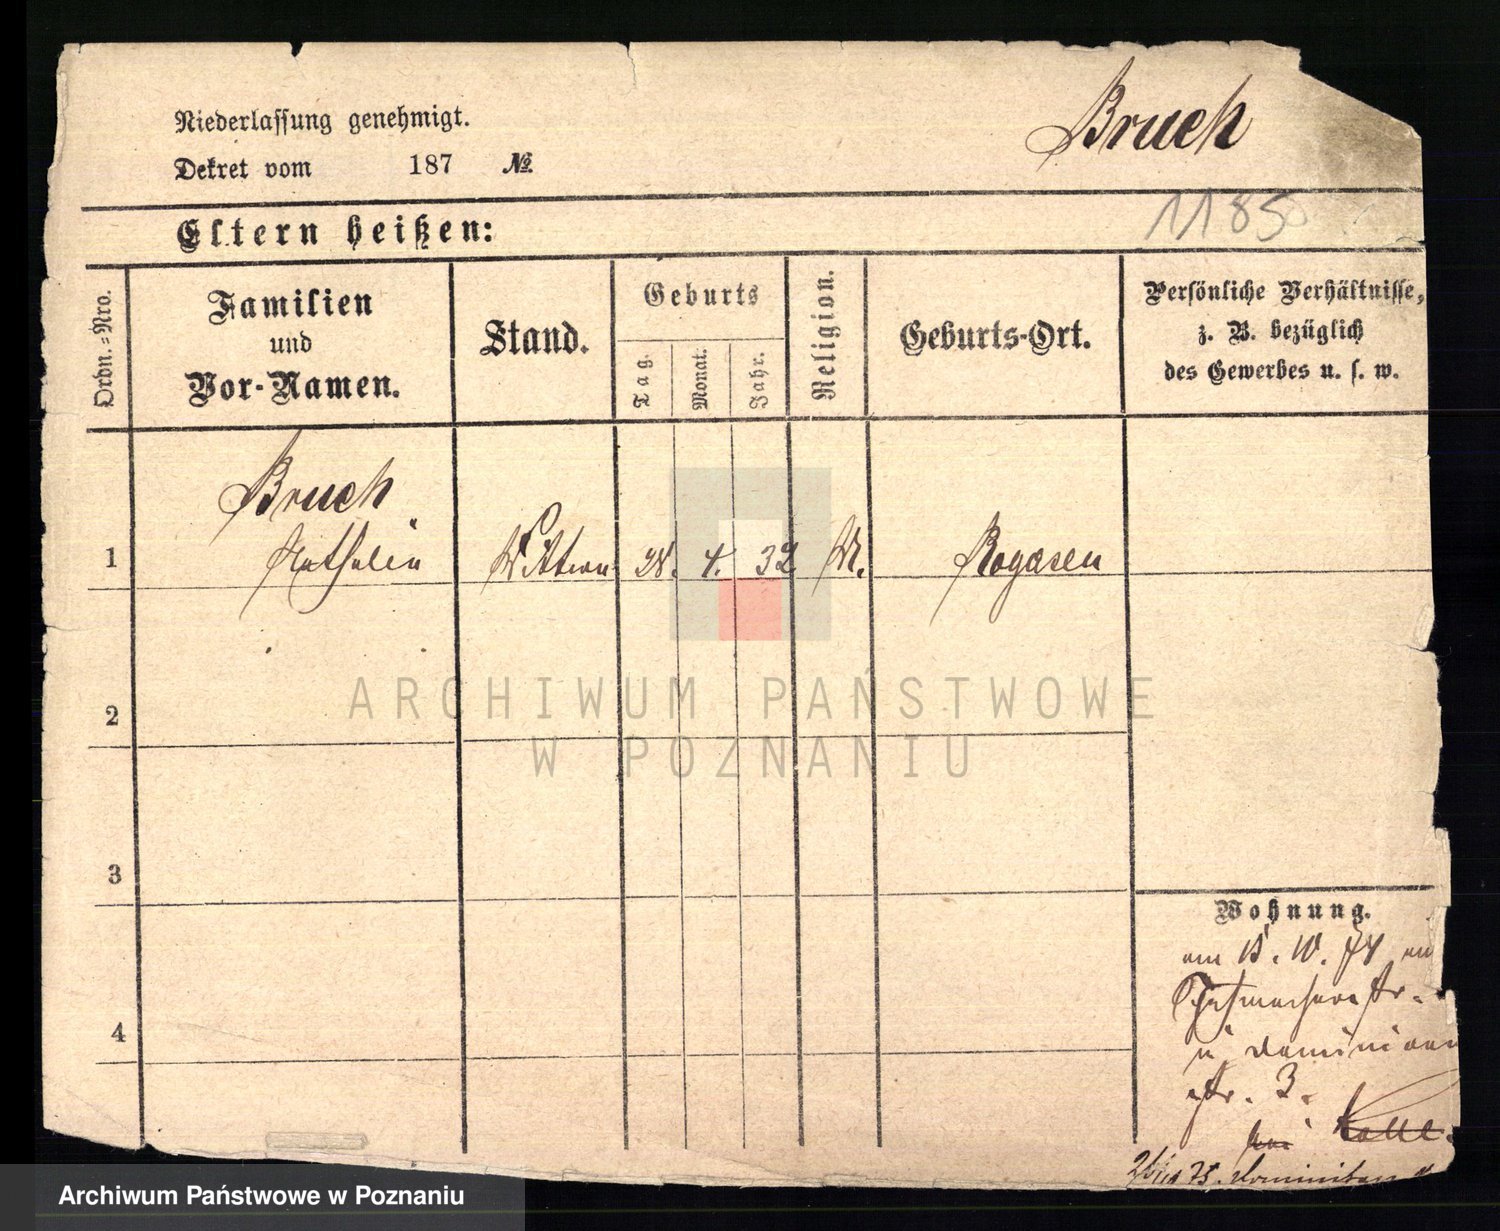 Niederlassung genehmigt.
Dekret vom 187 №
Bruch
1185
Eltern heißen:
Ordn.=Nro.
Familien
und
Vor-Namen.
Stand.
Geburts
Tag.
Monat.
Jahr.
Religion.
Geburts-Ort.
Persönliche Verhältnisse,
z. B. bezüglich
des Gewerbes u. s. w.
Bruch
1 Nathalie Wittwe 28. 4. 32 M. Rogasen
2
3
4
Wohnung.
am 15. 10. 74 
Schuhmacherstr.
u
str. 3.
bei
75.
ARCHIWUM PAŃSTWOWE
W POZNANIU
Archiwum Państwowe w Poznaniu